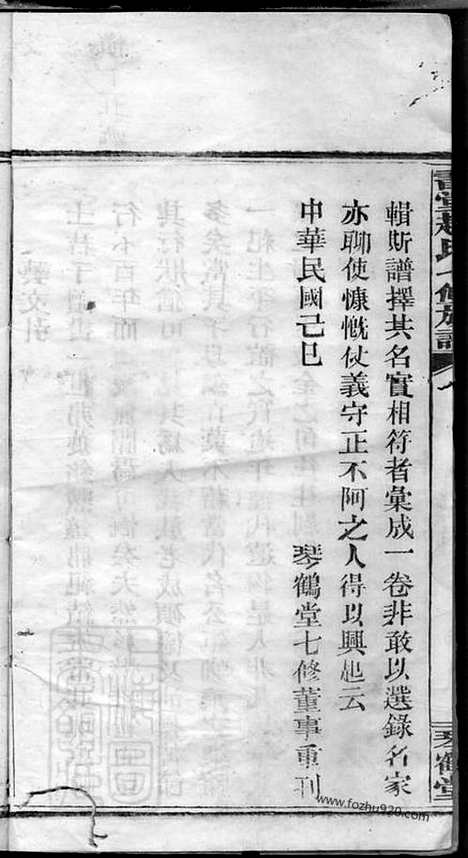 輯斯譜擇其名實相符者彙成一卷非敢以選錄名家
亦聊使慷慨仗義守正不阿之人得以興起云
中華民國己巳
琴鶴堂七修董事重刊
琴鶴堂
www.fozhu920.com